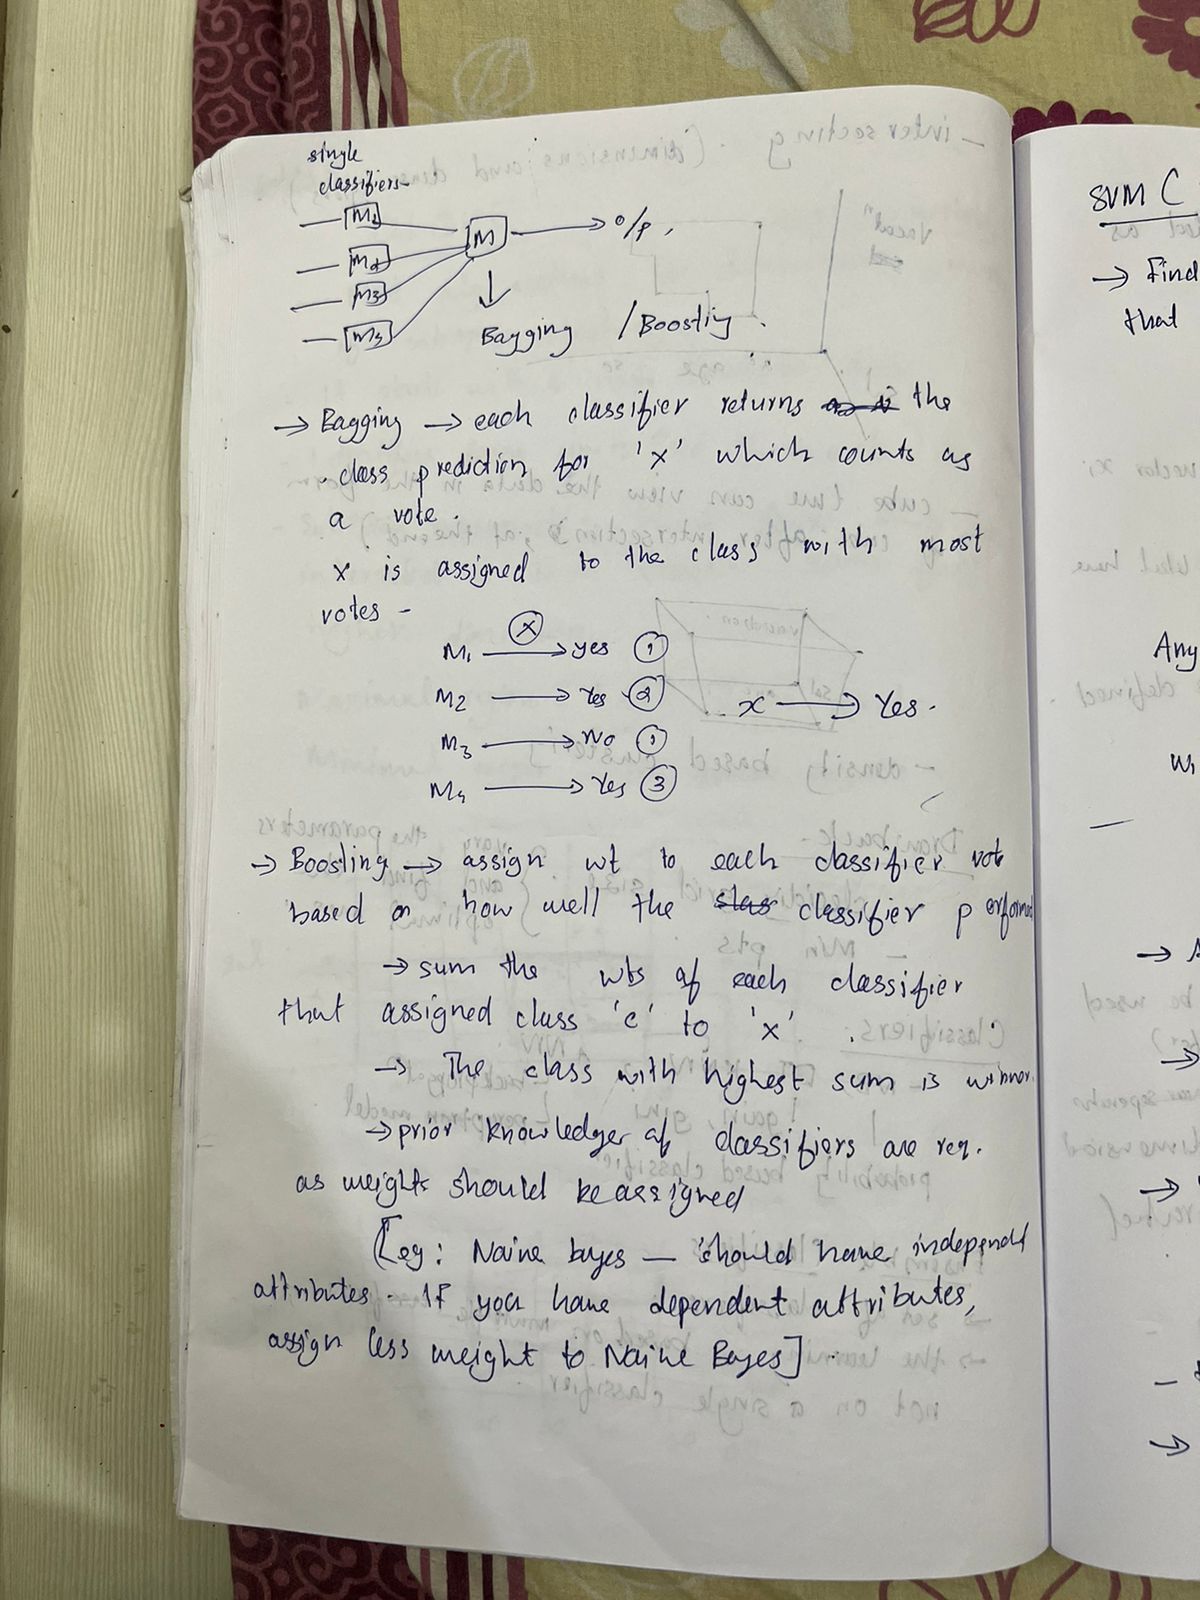 single
classifiers-
M1
M2
M3
M4
M → o/p,
Bagging / Boosting.
→ Bagging → each classifier returns the
class prediction for 'x' which counts as
a vote.
x is assigned to the class with most
votes -
M1 —x→ yes 1
M2 → Yes 2
M3 → No 1
M4 → Yes 3
x → Yes.
→ Boosting → assign wt to each classifier vote
based on how well the classifier performed
→ sum the wts of each classifier
that assigned class 'c' to 'x'.
→ The class with highest sum is winner.
→ prior knowledge of classifiers are req.
as weights should be assigned
[eg: Naive bayes — should have independent
attributes. If you have dependent attributes,
assign less weight to Naive Bayes].
SVM C
→ Find
that
Any